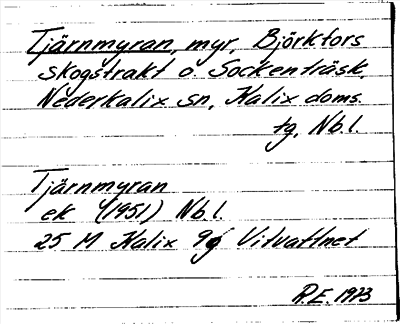 Tjärnmyran, myr, Björkfors
skogstrakt o. Sockenträsk,
Nederkalix sn, Kalix doms.
tg, Nb l.
Tjärnmyran
ek (1951) Nb l.
25 M Kalix 9g Vitvattnet
R.E. 1973